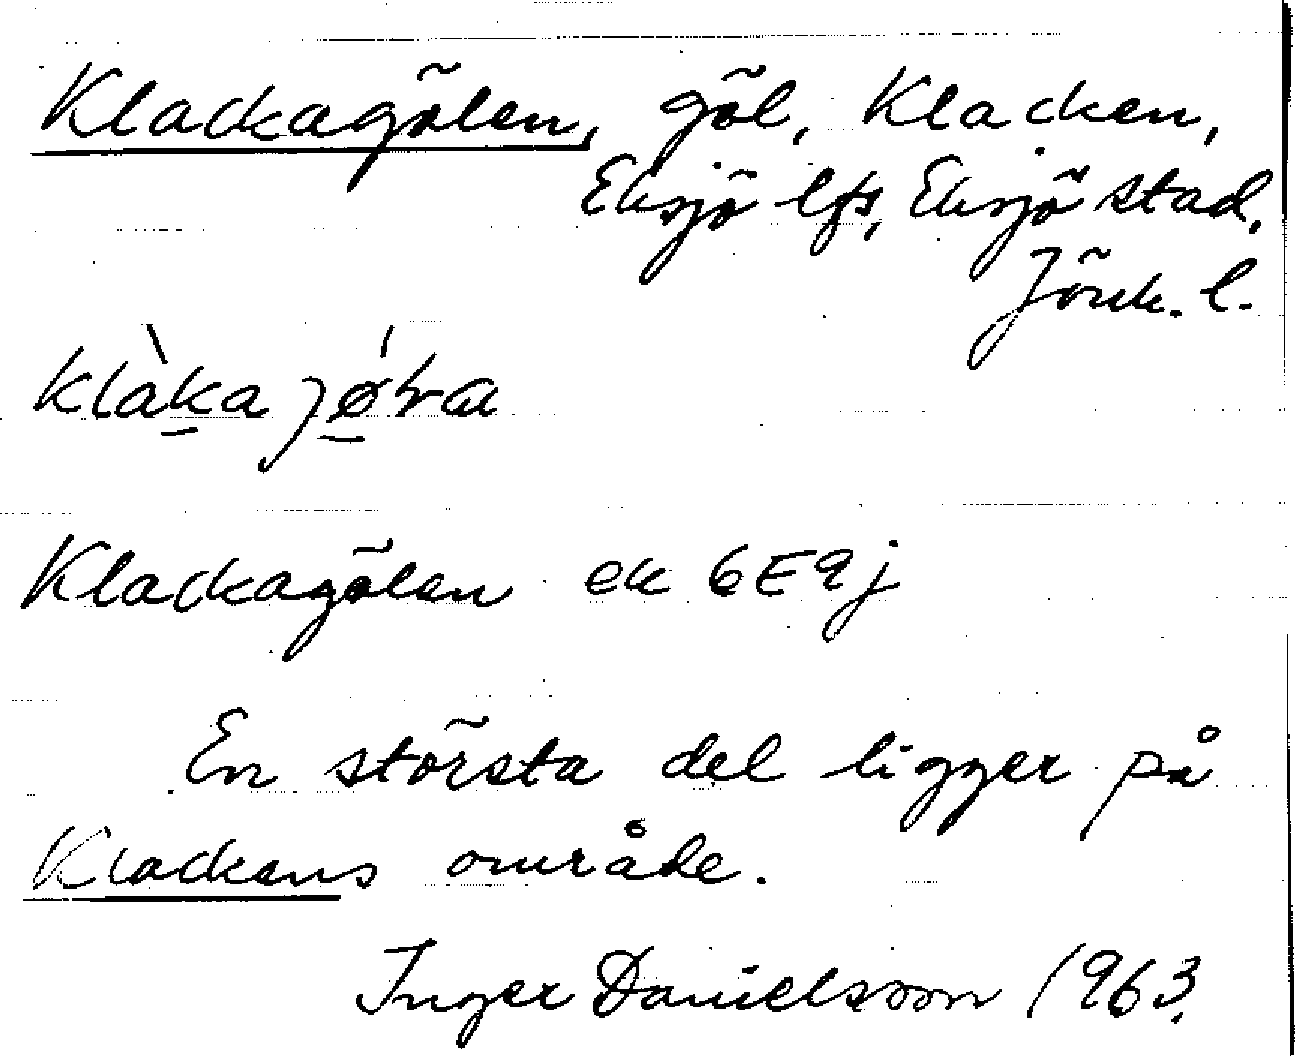 Klackagölen, göl, Klacken,
Eksjö lfs, Eksjö stad,
Jönk. l.
Klackagölen ek 6E9j
En största del ligger på
Klackens område.
Inger Danielsson 1963.